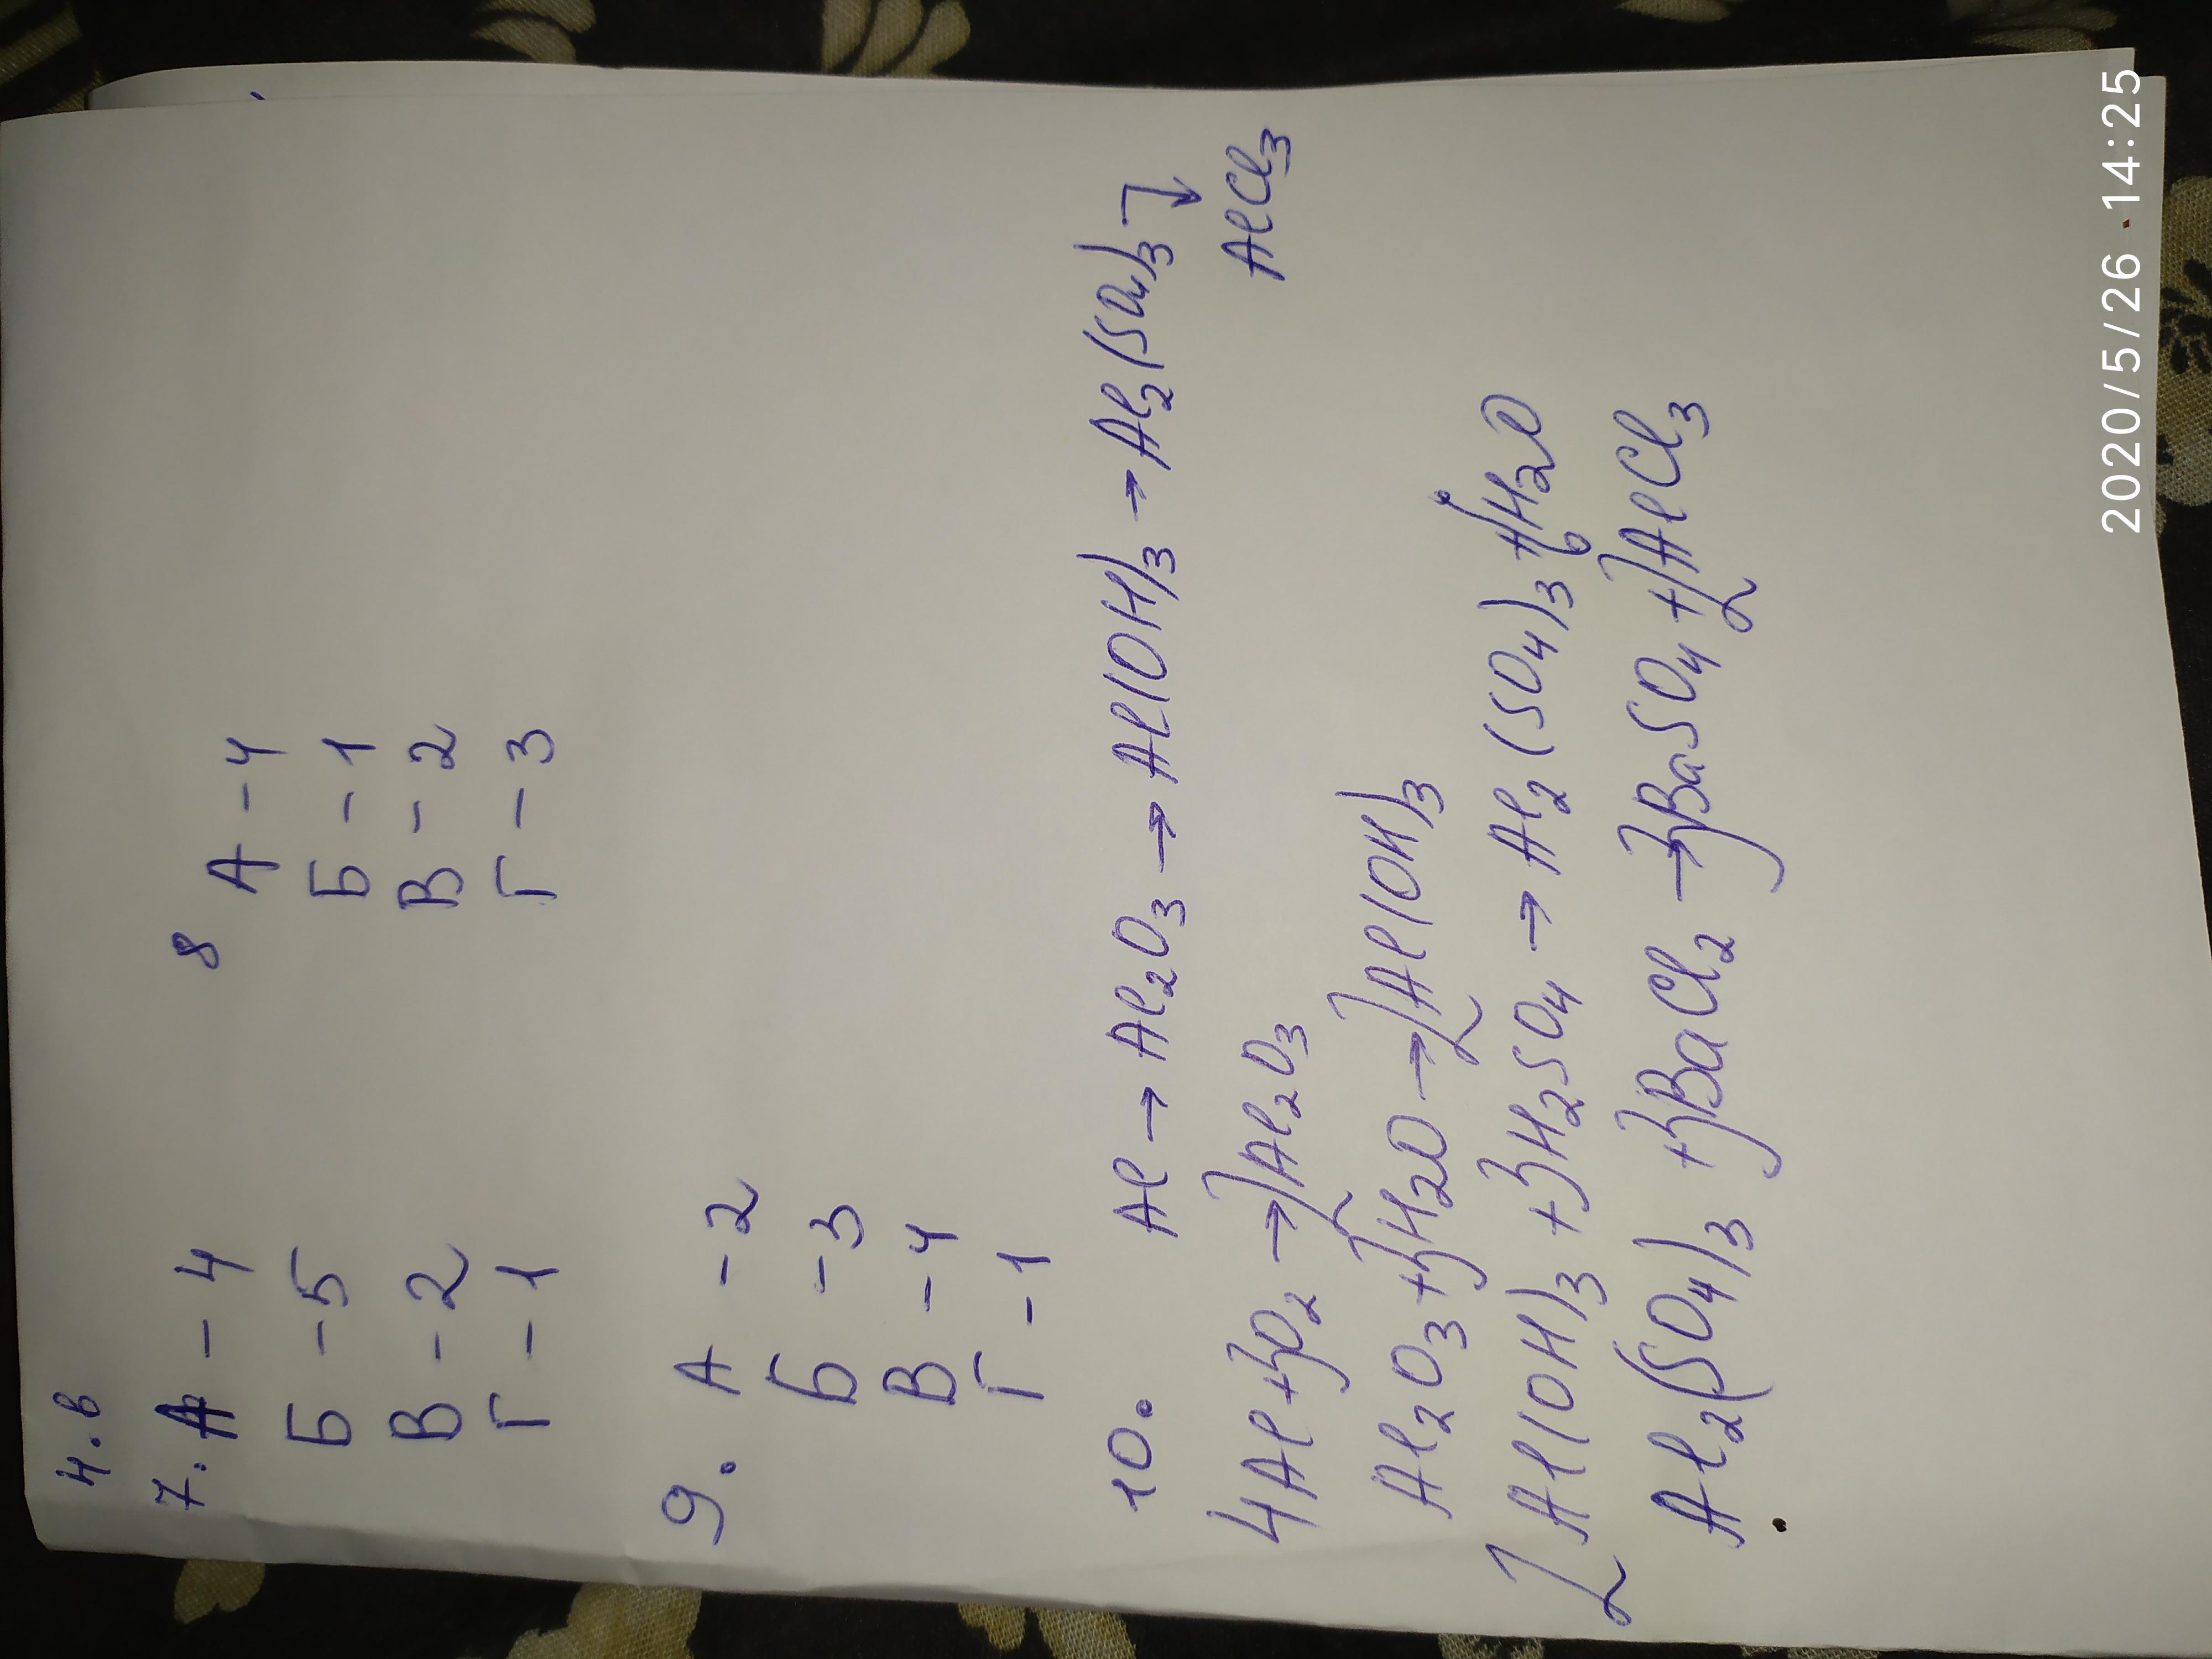 4. в
7. А - 4
Б - 5
В - 2
Г - 1
8
А - 4
Б - 1
В - 2
Г - 3
9. А - 2
Б - 3
В - 4
Г - 1
10. Al → Al₂O₃ → Al(OH)₃ → Al₂(SO₄)₃ ↓
AlCl₃
4Al + 3O₂ → 2Al₂O₃
Al₂O₃ + 3H₂O → 2Al(OH)₃
2Al(OH)₃ + 3H₂SO₄ → Al₂(SO₄)₃ + 6H₂O
Al₂(SO₄)₃ + 3BaCl₂ → 3BaSO₄ + 2AlCl₃
2020/5/26 14:25